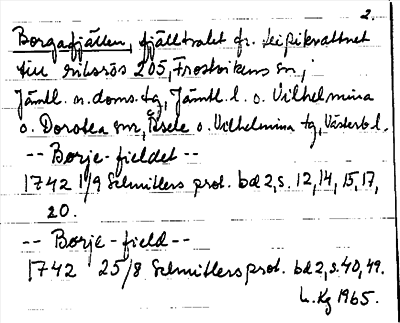 2.
Borgafjällen, fjälltrakt fr. Leipikvattnet
till riksrös 205, Frostvikens sn,
Jämtl. n. doms. tg, Jämtl. l. o. Vilhelmina
o. Dorotea snr, Åsele o. Vilhelmina tg, Västerb. l.
-- Borje-fieldet --
1742 1/9 Schnitlers prot. bd 2, s. 12, 14, 15, 17,
20.
-- Borje-field --
1742 25/8 Schnitlers prot. bd 2, s. 40, 49.
L. Kg 1965.